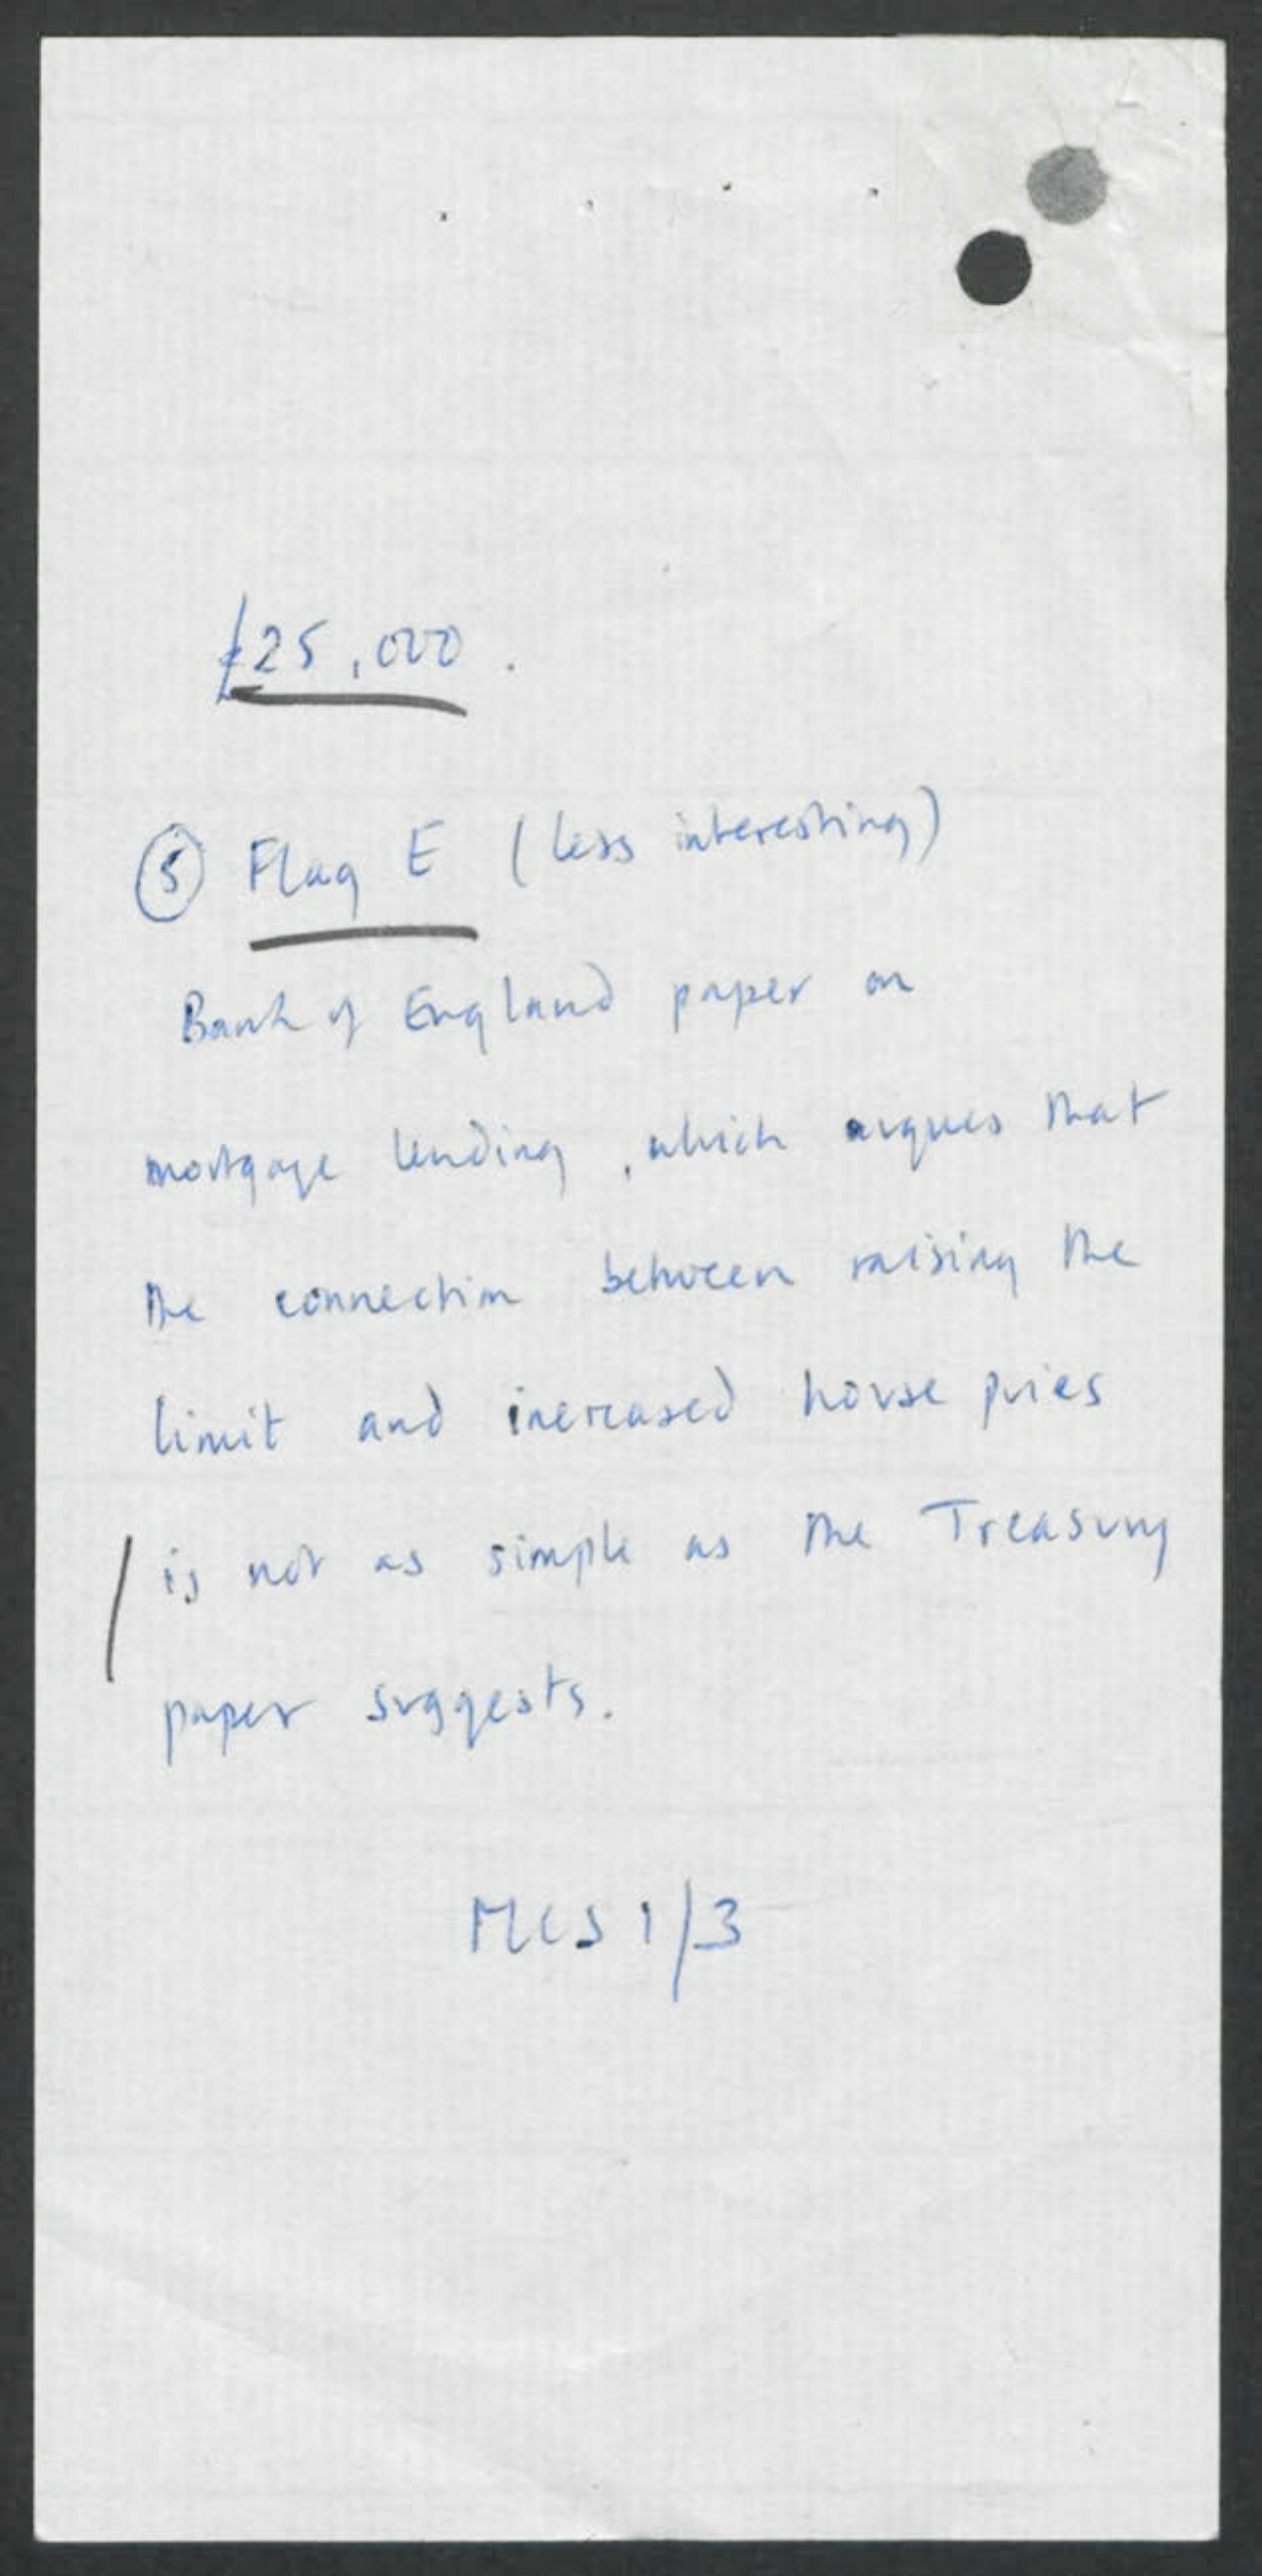 £25,000.
⑤ Flag E (less interesting)
Bank of England paper on
mortgage lending, which argues that
the connection between raising the
limit and increased house pries
is not as simple as the Treasury
paper suggests.
MCS 1/3